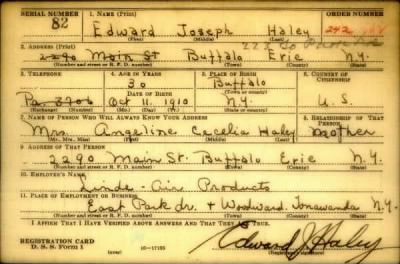 SERIAL NUMBER 1. NAME (Print) ORDER NUMBER
82 Edward Joseph Haley 242
(First) (Middle) (Last)
2. ADDRESS (Print)
2290 Main St Buffalo Erie N.Y.
(Number and street or R. F. D. number) (Town) (County) (State)
3. TELEPHONE 4. AGE IN YEARS 5. PLACE OF BIRTH 6. COUNTRY OF CITIZENSHIP
30 Buffalo
DATE OF BIRTH (Town or county)
Pa. 3706 Oct 11, 1910 N.Y. U.S.
(Exchange) (Number) (Mo.) (Day) (Yr.) (State or country)
7. NAME OF PERSON WHO WILL ALWAYS KNOW YOUR ADDRESS 8. RELATIONSHIP OF THAT PERSON
Mrs. Angeline Cecelia Haley Mother
(Mr., Mrs., Miss) (First) (Middle) (Last)
9. ADDRESS OF THAT PERSON
2290 Main St. Buffalo Erie N.Y.
(Number and street or R. F. D. number) (Town) (County) (State)
10. EMPLOYER'S NAME
Linde-Air Products
11. PLACE OF EMPLOYMENT OR BUSINESS
East Park dr. + Woodward. Tonawanda N.Y.
(Number and street or R. F. D. number) (Town) (County) (State)
I AFFIRM THAT I HAVE VERIFIED ABOVE ANSWERS AND THAT THEY ARE TRUE.
REGISTRATION CARD
D. S. S. Form 1 (over) 16—17105 Edward J. Haley